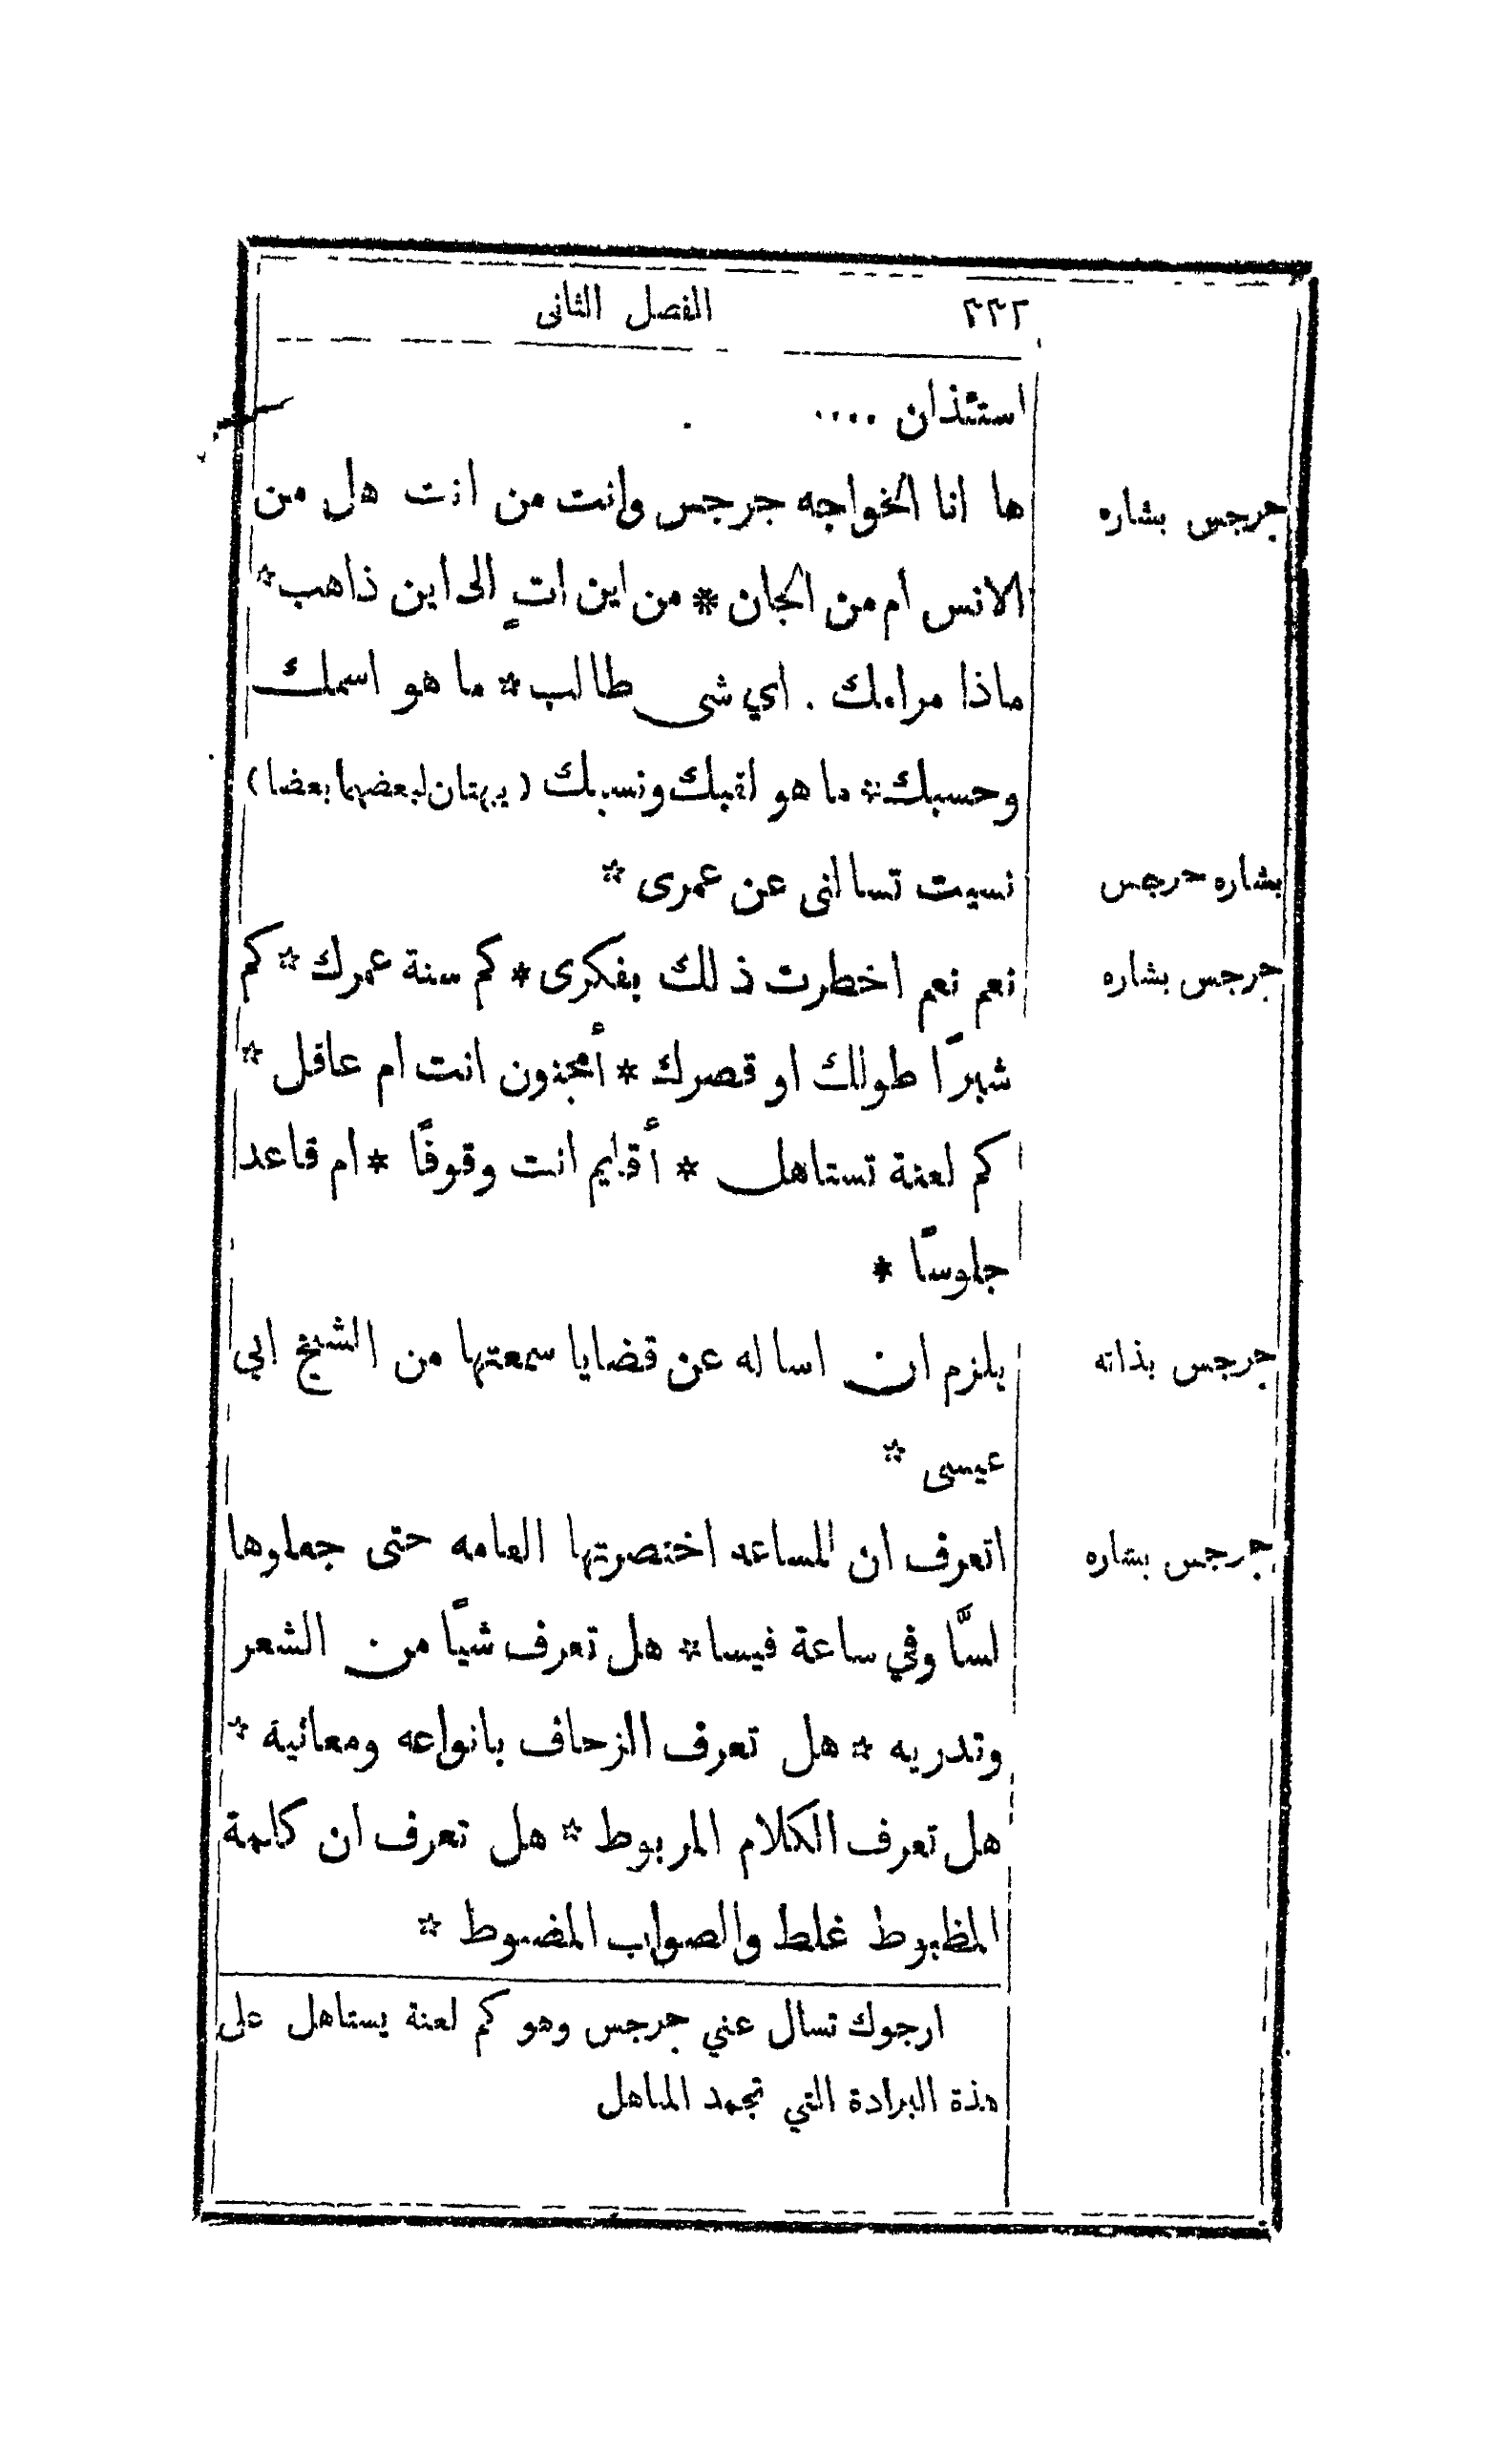 ٣٣٢ الفصل الثانى
استئذان ....
جرجس بشاره ها انا الخواجه جرجس وانت من انت هل من
الانس ام من الجان * من اين اتٍ الى اين ذاهب *
ماذا مراءك . اي شى طالب * ما هو اسمك
وحسبك * ما هو لقبك ونسبك ( يبهتان لبعضهما بعضا )
بشاره جرجس نسيت تسالنى عن عمرى *
جرجس بشاره نعم نعم اخطرت ذلك بفكرى * كم سنة عمرك * كم
شبرًا طولك او قصرك * أمجنون انت ام عاقل *
كم لعنة تستاهل * أقايم انت وقوفًا * ام قاعد
جلوسًا *
جرجس بذاته يلزم ان اساله عن قضايا سمعتها من الشيخ ابي
عيسى *
جرجس بشاره اتعرف ان للساعه اختصرتها العامه حتى جعلوها
لسًّا وفي ساعة فيسا * هل تعرف شيًا من الشعر
وتدريه * هل تعرف الزحاف بانواعه ومعانية *
هل تعرف الكلام المربوط * هل تعرف ان كلمة
المظبوط غلط والصواب المضبوط *
ارجوك تسال عني جرجس وهو كم لعنة يستاهل على
هذة البرادة التي تجمد الماهل